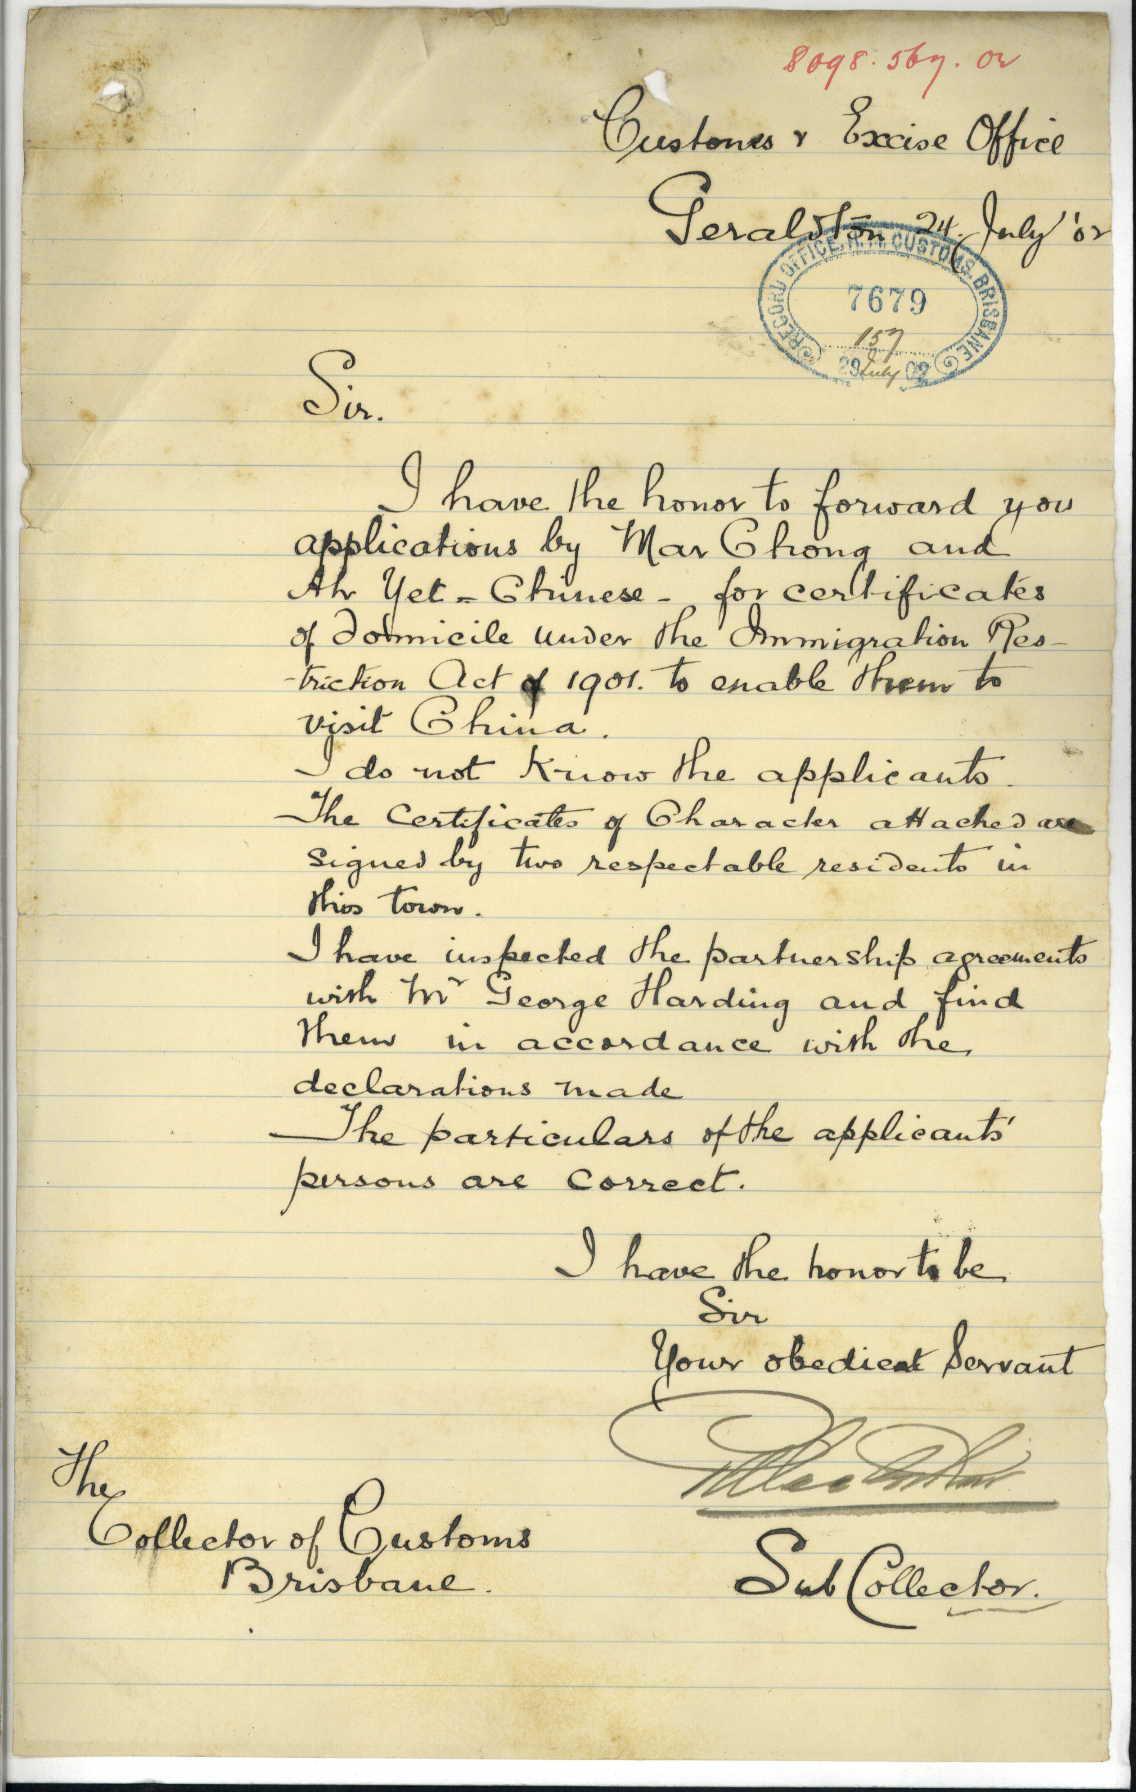 8098. 567. 02
Customs & Excise Office
Geraldton 24. July '02
RECORD OFFICE, H.M. CUSTOMS, BRISBANE
7679
157
29 July 02
Sir.
I have the honor to forward you
applications by Mar Chong and
Ah Yet - Chinese - for certificates
of domicile under the Immigration Res-
-triction Act of 1901. to enable them to
visit China.
I do not know the applicants.
The Certificates of Character attached are
signed by two respectable residents in
this town.
I have inspected the partnership agreements
with Mr George Harding and find
them in accordance with the
declarations made
The particulars of the applicants'
persons are correct.
I have the honor to be
Sir
Your obedient Servant
Sub Collector.
The
Collector of Customs
Brisbane.